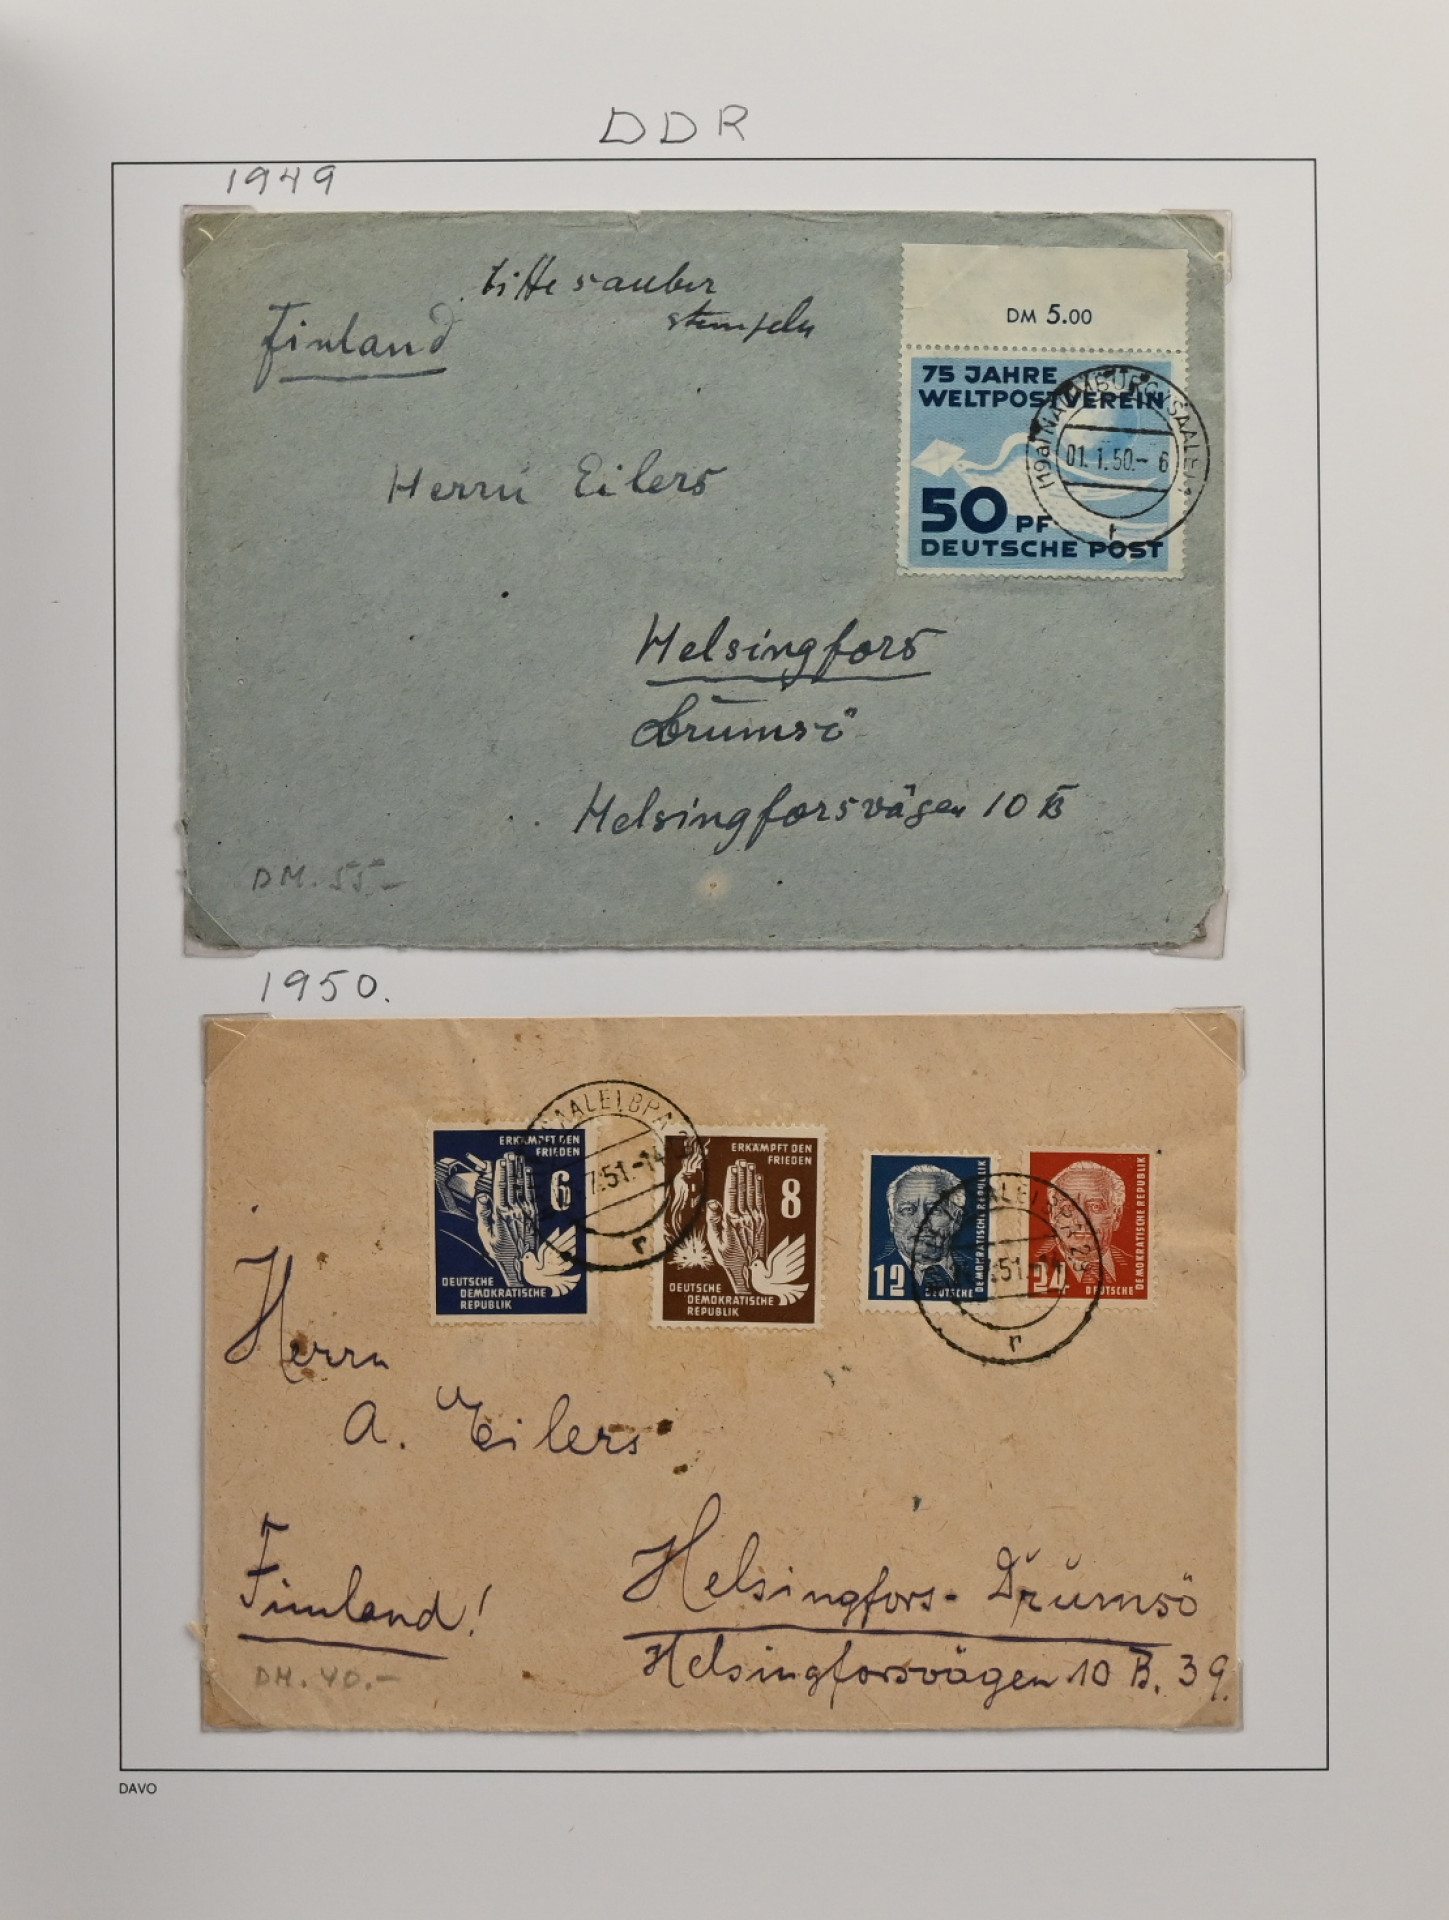 DDR
1949
bitte sauber
stempeln
Finland
DM 5.00
75 JAHRE
WELTPOSTVEREIN
(19a) NAUMBURG (SAALE) 1
01.1.50.-6
r
50 PF
DEUTSCHE POST
Herrn Eilers
Helsingfors
Drumsö
Helsingforsvägen 10 B
DM. 55.-
1950.
ERKÄMPFT DEN
FRIEDEN
6
DEUTSCHE
DEMOKRATISCHE
REPUBLIK
SAALE) BPA
7.51.-14
r
ERKÄMPFT DEN
FRIEDEN
8
DEUTSCHE
DEMOKRATISCHE
REPUBLIK
12
DEUTSCHE
DEMOKRATISCHE REPUBLIK
51
r
24
DEUTSCHE
DEMOKRATISCHE REPUBLIK
Herrn
A. Eilers
Finland!
Helsingfors-Drumsö
Helsingforsvägen 10 B. 39.
DM. 40.-
DAVO